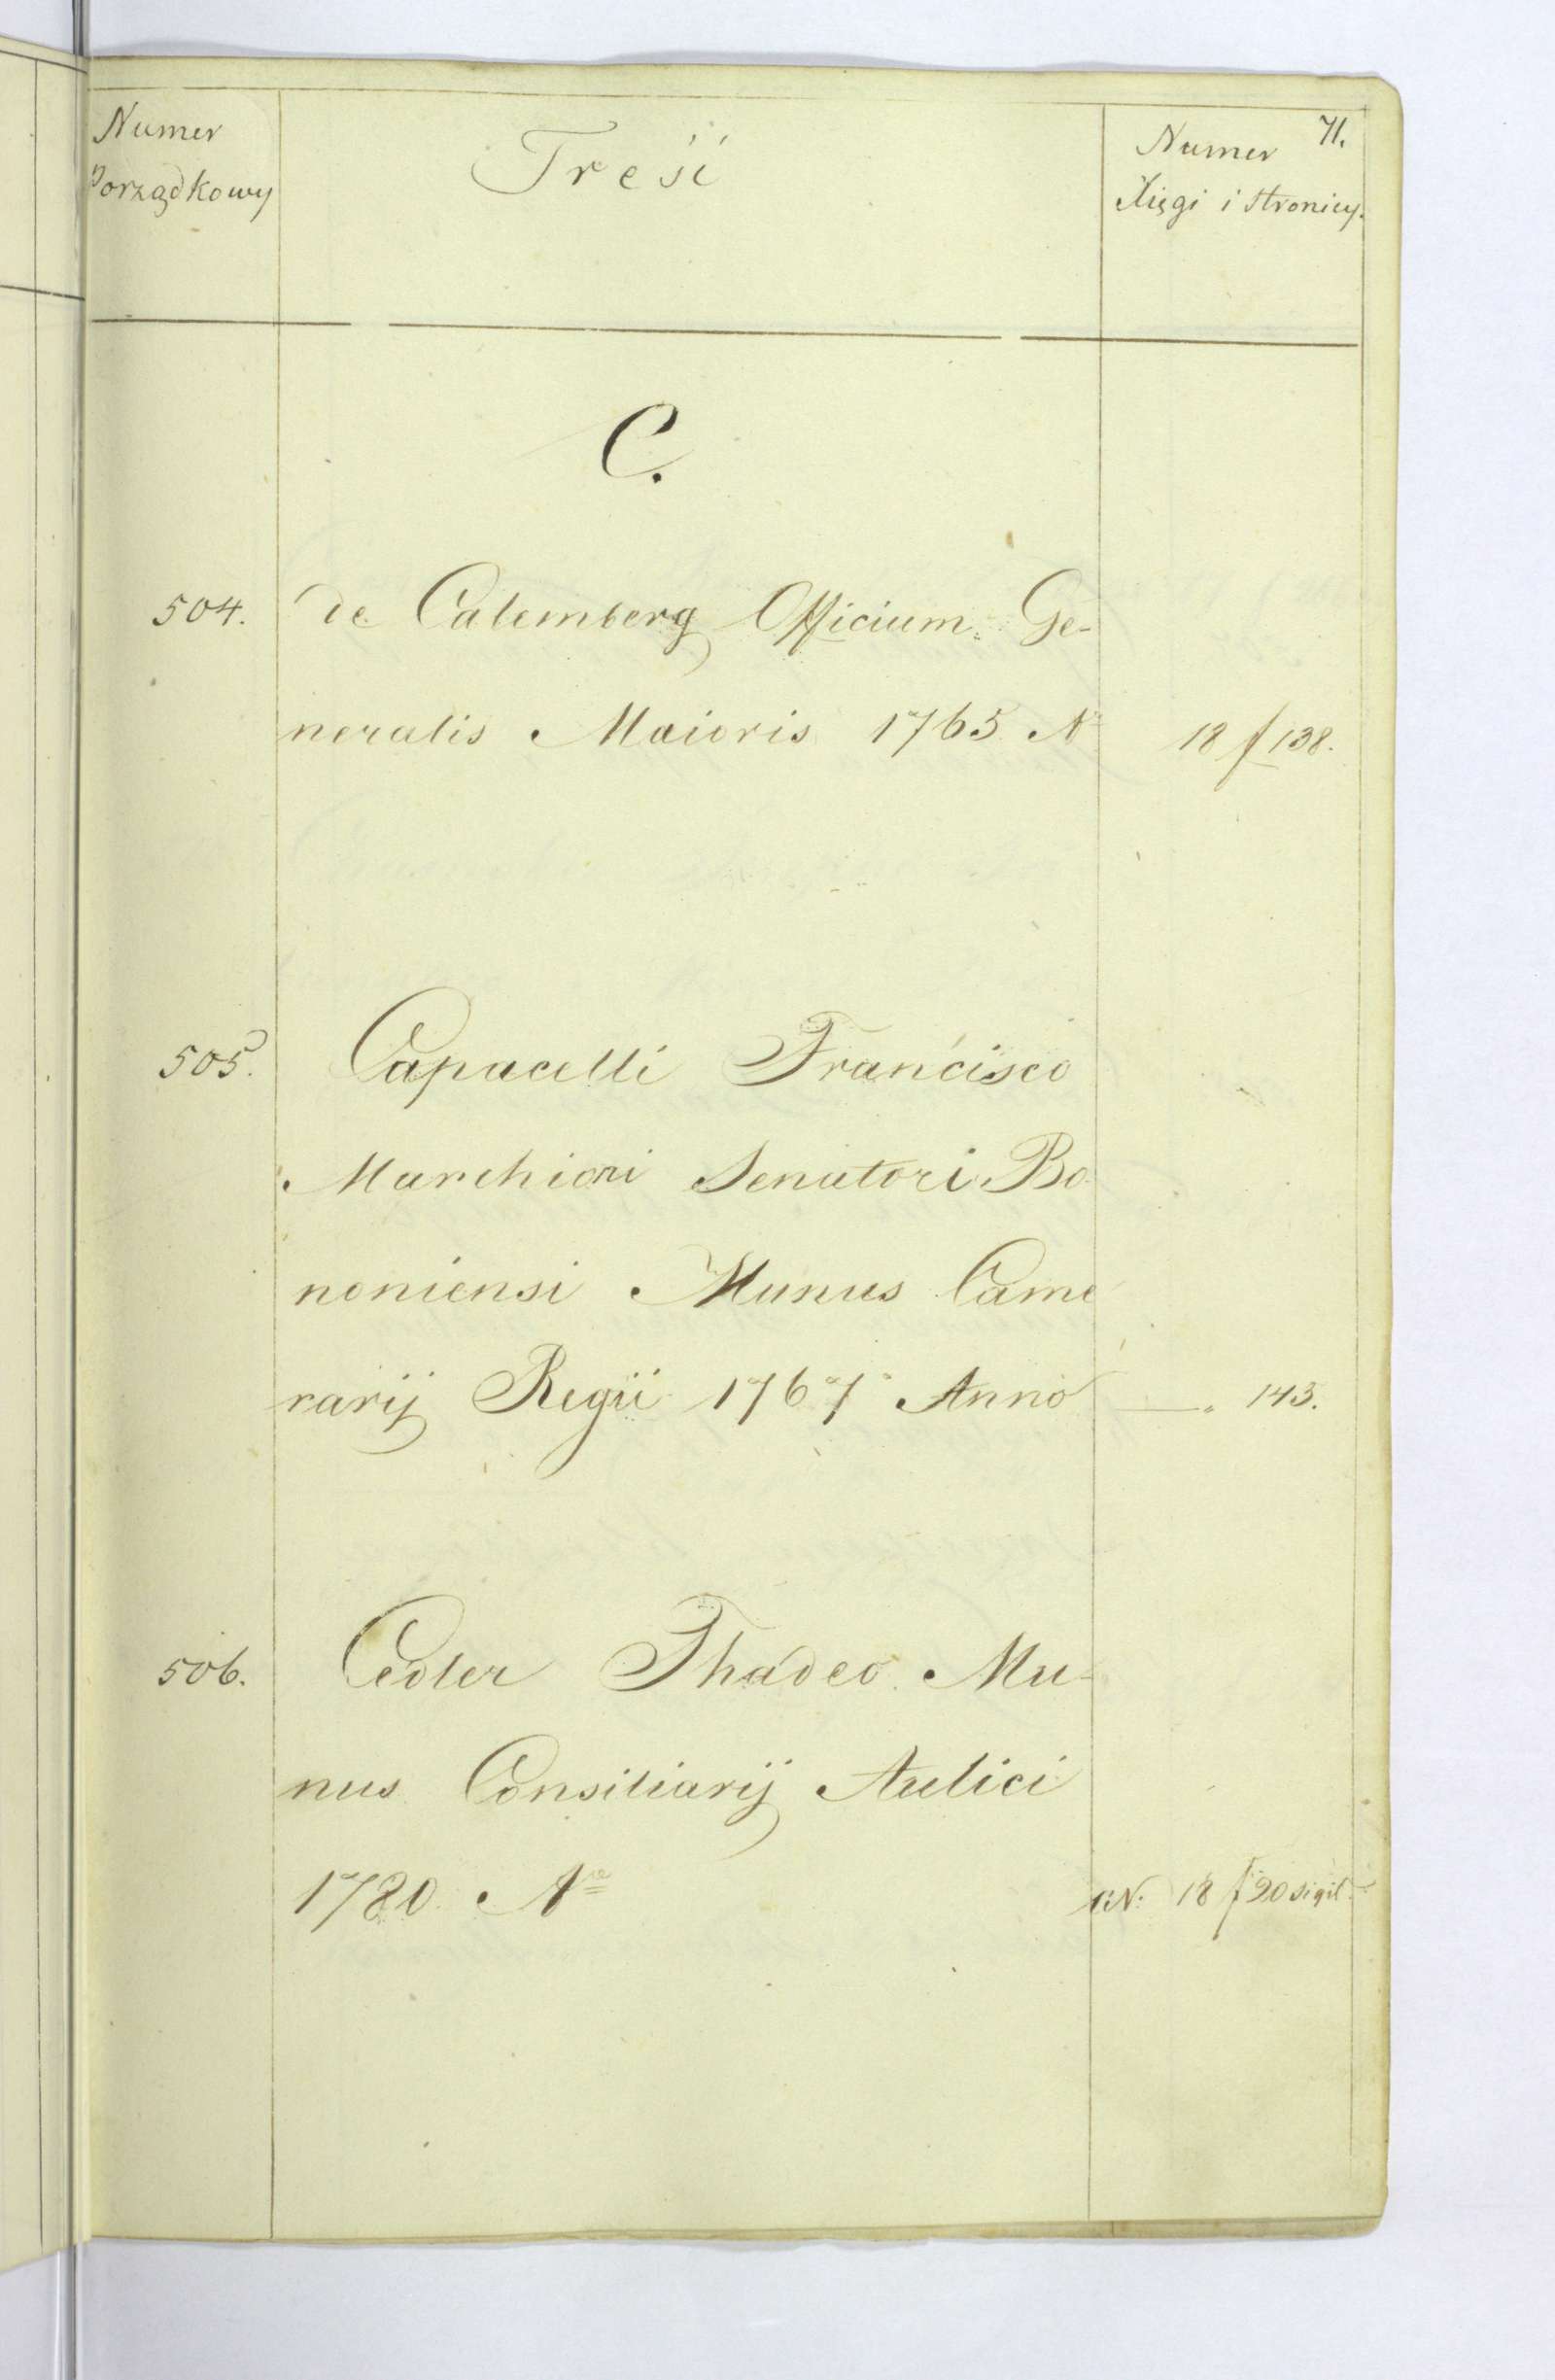 71.
Numer
Porządkowy
Treść
Numer
Xięgi i stronicy.
C.
504. de Calemberg Officium Ge-
neralis Maioris 1765 N 18 f 138.
505. Capacelli Francisco
Marchioni Senatori Bo
noniensi Munus Came
rarij Regii 1767 Anno —„ 143.
506. Cedler Thadeo Mu-
nus Consiliarij Aulici
1780 N° 18 f 20 sigil.